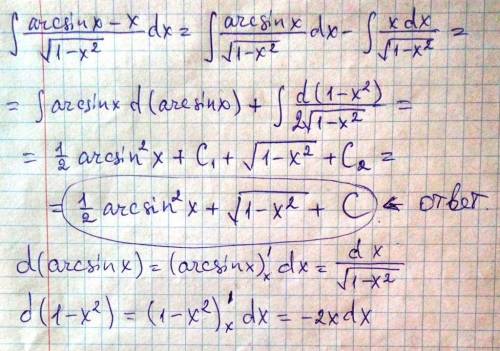 ∫ (arcsin x − x)/√(1−x²) dx = ∫ arcsin x/√(1−x²) dx − ∫ x dx/√(1−x²) =
= ∫ arcsin x d(arcsin x) + ∫ d(1−x²)/(2√(1−x²)) =
= 1/2 arcsin²x + C₁ + √(1−x²) + C₂ =
= 1/2 arcsin²x + √(1−x²) + C ← ответ.
d(arcsin x) = (arcsin x)'ₓ dx = dx/√(1−x²)
d(1−x²) = (1−x²)'ₓ dx = −2x dx